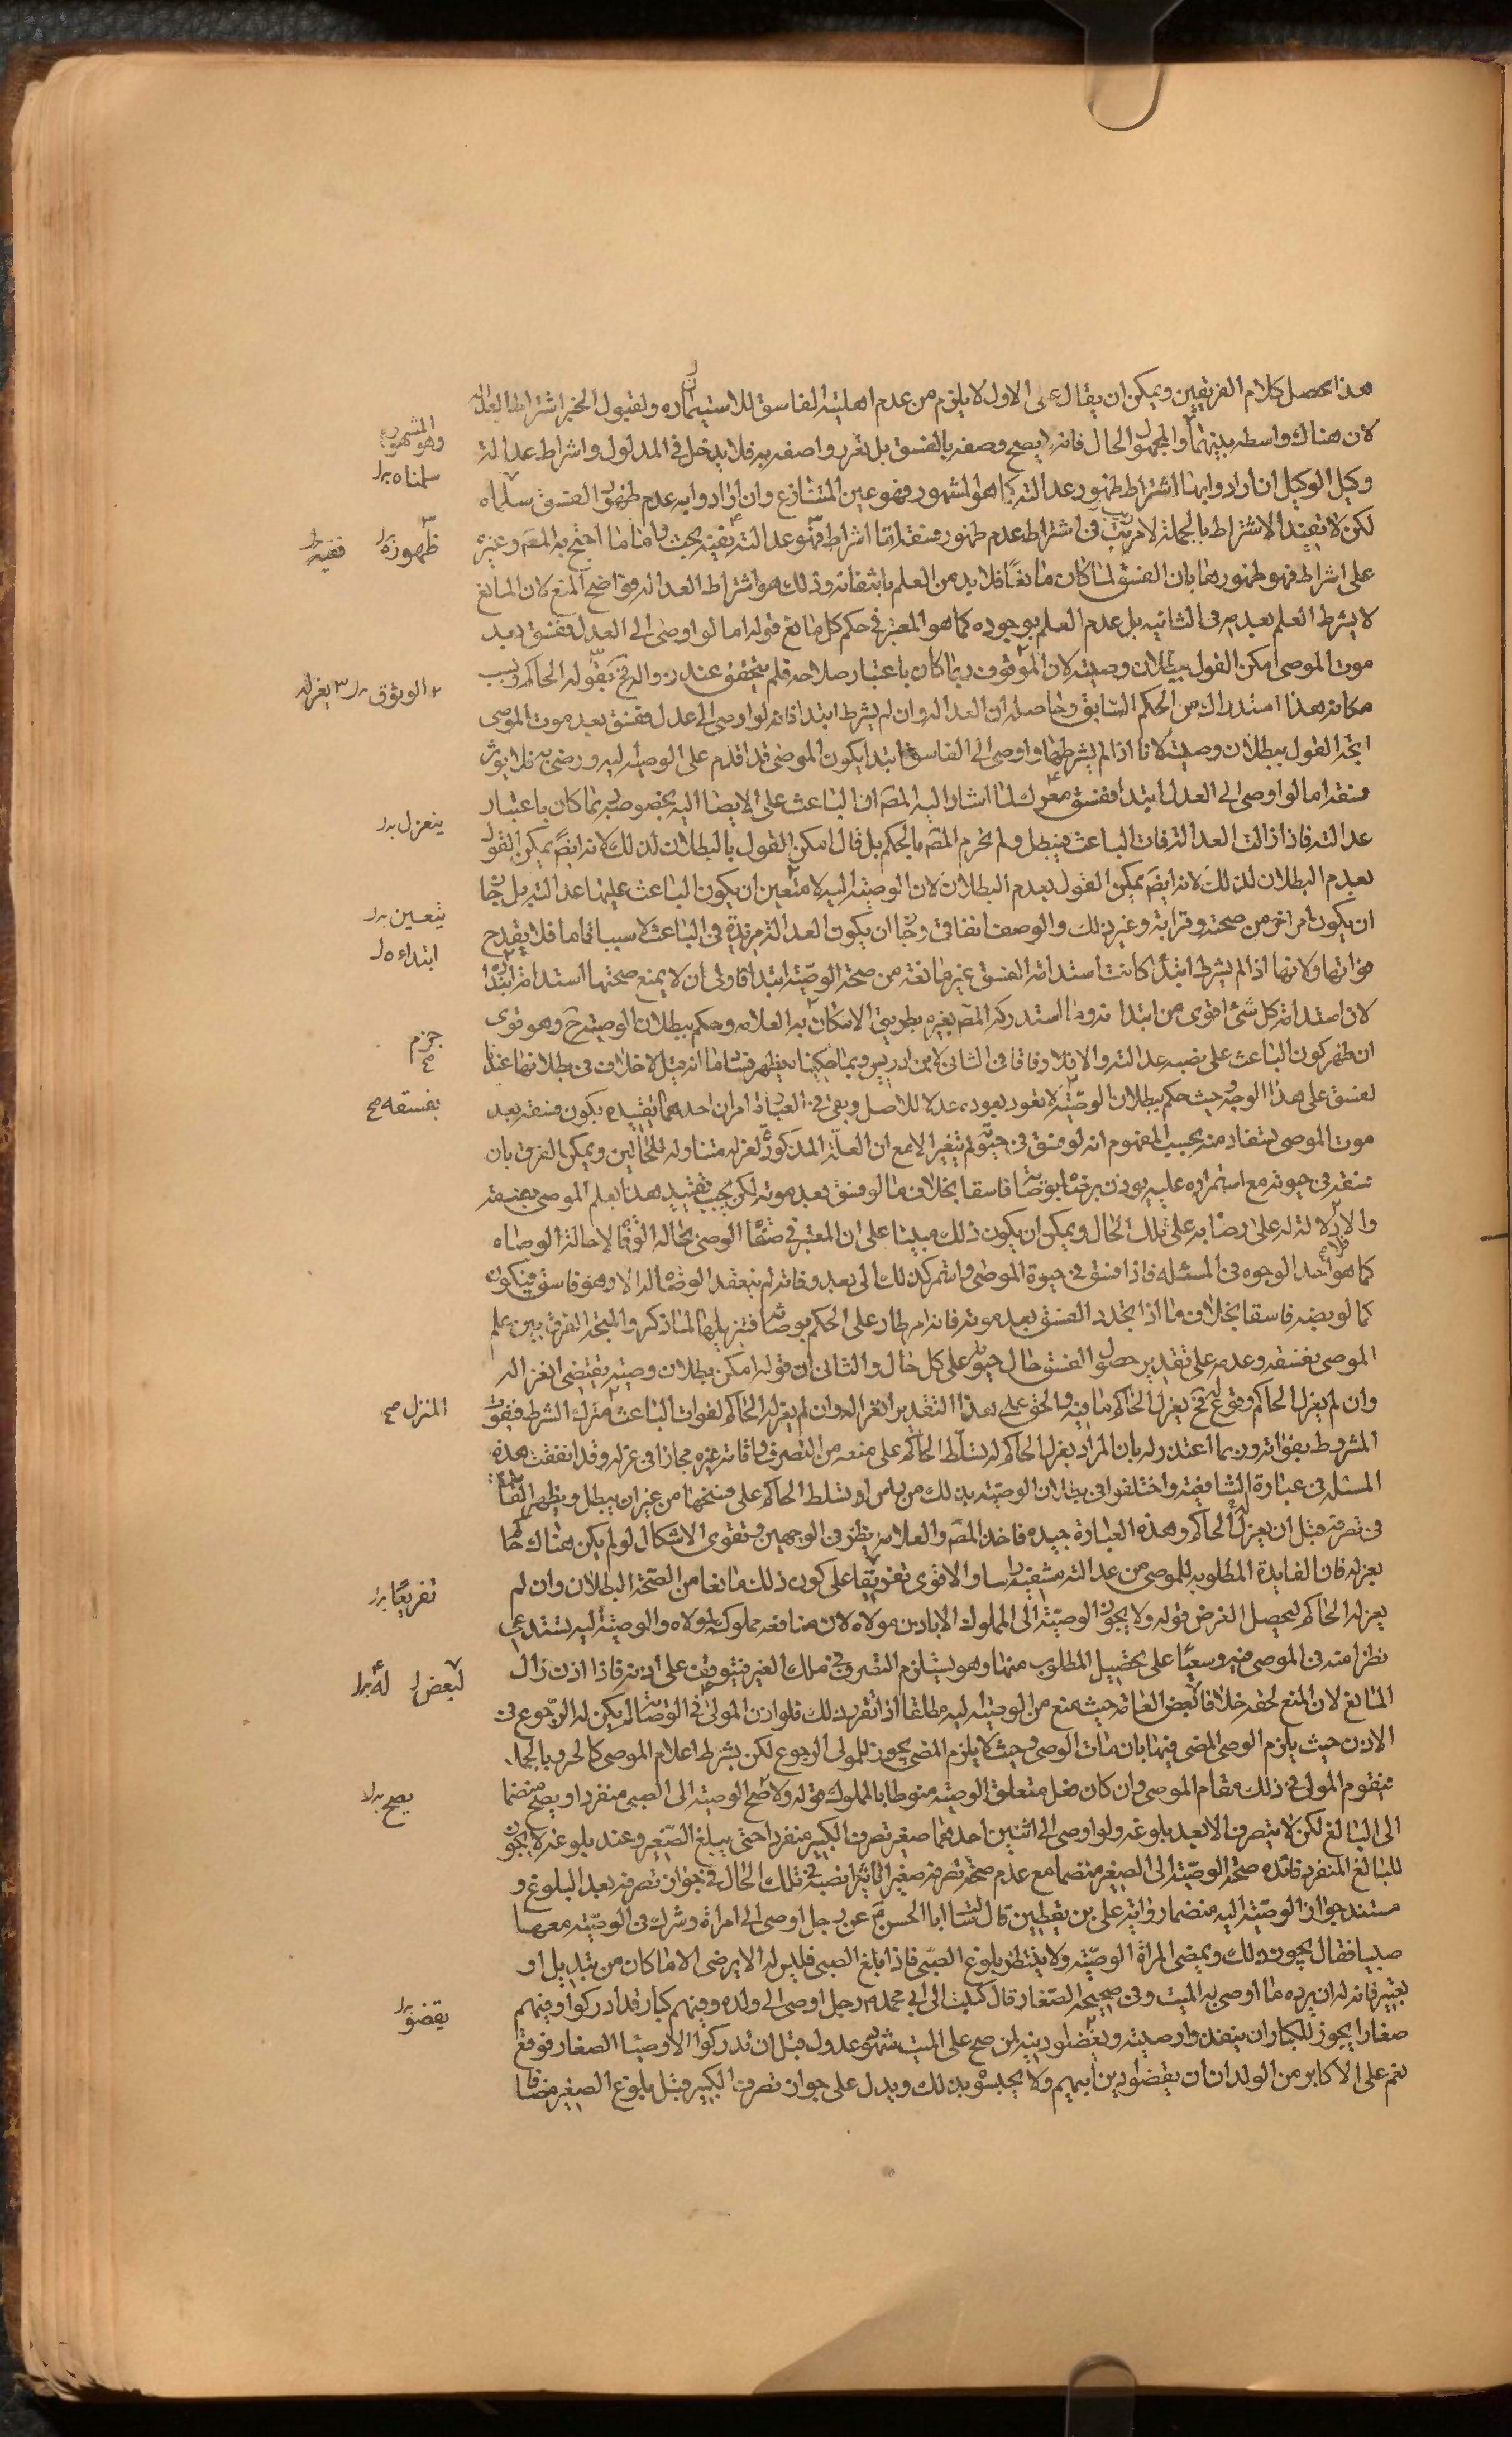 هذا محصل كلام الفريقين ويمكن ان يقال على الاول لا يلزم من عدم اهلية الفاسق للاستيمان ولقبول الخبر اشتراط العدالة
لان هناك واسطه بينهما والمجهول الحال فانه لا يصح وصفه بالفسق بل يغرر واصفه به فلا يدخل في المدلول واشتراط عدالة
وكيل الوكيل ان ارادوا بها اشتراط ظهور عدالته كما هو المشهور فهو عين المتنازع وان ارادوا به عدم ظهور الفسق سلمناه
لكن لا يفيد الاشتراط بالجملة لا ريب في اشتراط عدم ظهور فسقه اما اشتراط ظهور عدالته ففيه بحث واما ما احتج به المص وغيره
على اشتراط ظهورها بان الفسق لما كان مانعا فلا بد من العلم بانتفائه وذلك هو اشتراط العداله فواضح المنع لان المانع
لا يشترط العلم بعدمه في الثانيه بل عدم العلم بوجوده كما هو المعتبر في حكم كل مانع قوله اما لو اوصى الى العدل ففسق بعد
موت الموصى امكن القول ببطلان وصيته لان الوثوق ربما كان باعتبار صلاحه فلم يتحقق عند زواله فح يعزله الحاكم وينيب
مكانه هذا استدراك من الحكم السابق وحاصله ان العداله وان لم يشترط ابتدا فانه لو اوصى الى عدل ففسق بعد موت الموصى
اتجه القول ببطلان وصيته لانا اذا لم يشترطها واوصى الى الفاسق ابتدا يكون الموصى قد اقدم على الوصية اليه ورضي به فلا يؤثر
فسقه اما لو اوصى الى العدل ابتدا ففسق لما اشار اليه المص ان الباعث على الايصا اليه بخصوصه ربما كان باعتبار
عدالته فاذا زالت العدالة فات الباعث فيبطل ولم يجزم المص بالحكم بل قال امكن القول بالبطلان لذلك لانه ايضا يمكن القول
بعدم البطلان لذلك لانه ايضا يمكن القول بعدم البطلان لان الوصية اليه لا يتعين ان يكون الباعث عليها عدالته بل جاز
ان يكون لامر اخر من صحبة وقرابة وغير ذلك والوصف اتفاقى وجاز ان يكون العدالة مزيدة في الباعث لا سببا تاما فلا يقدح
فواتها ولانها اذا لم يشترط ابتدأ كانت استدامة الفسق غير مانعة من صحة الوصية ابتدا فاولى ان لا يمنع صحتها استدامة
لان استدامة كل شئ اقوى من ابتدائه وما استدركه المص بغيره بطريق الامكان به العلامه وحكم ببطلان الوصية ح وهو قوى
ان ظهر كون الباعث على نصبه عدالته والا فلا وفاقا في الثاني لابن ادريس وبما حكيناه يظهر فساد ما قيل لا خلاف في بطلانها
لفسق على هذا الوجه وحيث حكم ببطلان الوصية لا تعود بعوده عدلا للاصل وبقى في العبارة امران احدهما تقييده بكون فسقه بعد
موت الموصى يستفاد منه بحسب المفهوم انه لو فسق في حيوته لم يتغير الامر مع ان العلة المذكورة لعزله متناوله للحالين ويمكن الفرق بان
فسقه في حيوته مع استمراره عليه يوذن برضاه بوصايته فاسقا بخلاف ما لو فسق بعد موته لكن يجب تقييد هذا بعلم الموصى بفسقه
والا فلا دلالة له على رضاه به على تلك الحال ويمكن ان يكون ذلك مبنيا على ان المعتبر في صفات الوصى بحاله الوفاة لا حالة الوصاه
كما هو احد الوجوه في المسئله فاذا فسق في حيوة الموصى واستمر كذلك الى بعد وفاته لم تنعقد الوصاية له الا وهو فاسق فيكون
كما لو نصبه فاسقا بخلاف ما اذا تجدد الفسق بعد موته فانه امر طار على الحكم بوصايته فتنزيلها لما ذكر والمتجه الفرق بين علم
الموصى بفسقه وعدمه على تقدير حصول الفسق حال حيوته على كل حال والثاني ان قوله امكن بطلان وصيته يقتضى انعزاله
وان لم يعزله الحاكم وقوله ح يعزله الحاكم ما فيه والحق على هذا التقدير انعزاله وان لم يعزله الحاكم لفوات الباعث المنزل منزلة الشرط فيفوت
المشروط بفواته وربما اعتذر له بان المراد بعزل الحاكم له تسلط الحاكم على منعه من التصرف واقامة غيره مجازا في عزله وقد اتفقت هذه
المسئله في عبارة الشافعيه واختلفوا في بطلان الوصية بذلك من راس او تسلط الحاكم على فسخها من غير ان يبطل ويظهر الفائدة
في تصرفه قبل ان يعزله الحاكم وهذه العبارة جيده فاخذ المص والعلامه ينظر في الوجهين وتقوى الاشكال لو لم يكن هناك حاكم
يعزله فان الفايدة المطلوبه للموصى من عدالته منتفية راسا والاقوى تفريعا على كون ذلك مانعا من الصحة البطلان وان لم
يعزله الحاكم ليحصل الغرض قوله ولا يجوز الوصية الى المملوك الا باذن مولاه لان منافعه مملوكة لمولاه والوصية اليه تستدعى
نظرا منه في الموصى فيه وسعيا على تحصيل المطلوب منها وهو يستلزم التصرف في ملك الغير فيتوقف على اذنه فاذا اذن زال
المانع لان المنع لحقه خلافا لبعض العامة حيث منع من الوصية اليه مطلقا اذا تقرر ذلك فلو اذن المولى له في الوصاية لم يكن له الرجوع في
الاذن حيث يلزم الوصى المضى فيها بان مات الموصى وحيث لا يلزم المضى يجوز للمولى الرجوع لكن بشرط اعلام الموصى كالحر وبالجملة
فيقوم المولى في ذلك مقام الموصى وان كان فعل متعلق الوصية منوطا بالمملوك قوله ولا تصح الوصية الى الصبى منفردا ويصح منضما
الى البالغ لكن لا يتصرف الا بعد بلوغه ولو اوصى الى اثنين احدهما صغير تصرف الكبير منفردا حتى يبلغ الصغير وعند بلوغه لا يجوز
للبالغ المنفرد فائده صحة الوصية الى الصغير منضما مع عدم صحة تصرفه صغيرا تاثير نصبه في تلك الحال في جواز تصرفه بعد البلوغ و
مستند جواز الوصية اليه منضما رواية على بن يقطين قال سالت ابا الحسن ع عن رجل اوصى الى امراة وشرك في الوصية معها
صبيا فقال يجوز ذلك ويمضى المراة الوصية ولا ينتظر بلوغ الصبى فاذا بلغ الصبى فليس له الا يرضى الا ما كان من تبديل او
تغيير فانه له ان يرده ما اوصى به الميت وفي صحيحة الصفار قال كتبت الى ابي محمد ع رجل اوصى الى ولده وفيهم كبار قد ادركوا وفيهم
صغارا يجوز للكبار ان ينفذوا وصيته ويقضوا دينه لمن صح على الميت بشهود عدول قبل ان تدركوا الاوصيا الصغار فوقع
نعم على الاكابر من الولد ان ان يقضوا دين ابيهم ولا يحبسوه بذلك ويدل على جواز تصرف الكبير قبل بلوغ الصغير مضافا
وهو المشهور
سلمناه
ظهوره
ففيه
الوثوق
يعزله
ينعزل
يتعين
ابتداء
جزم
بفسقه صح
المنزل صح
تفريعا
لبعض
له
يصح
يقضوا